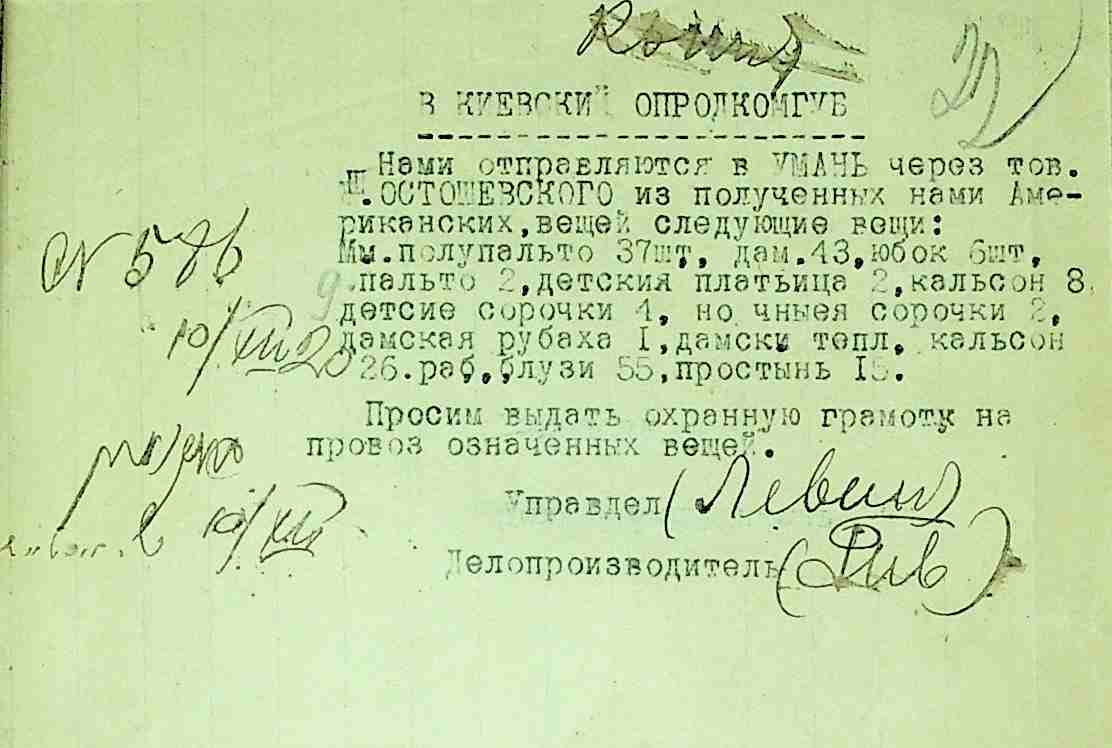 22
В КИЕВСКИЙ ОПРОДКОМГУБ
Нами отправляются в УМАНЬ через тов.
Ш.ОСТОШЕВСКОГО из полученных нами Аме-
риканских,вещей следующие вещи:
Мы.полупальто 37шт, дам.43,юбок 6шт,
д.пальто 2,детския платьица 2,кальсон 8,
детсие сорочки 4, но чныея сорочки 2,
дамская рубаха I,дамски тепл. кальсон
26.раб,блузи 55,простынь I5.
Просим выдать охранную грамоту на
провоз означенных вещей.
№ 586
10/XII 20
10/XII
Управдел (Левин)
Делопроизводитель ( )